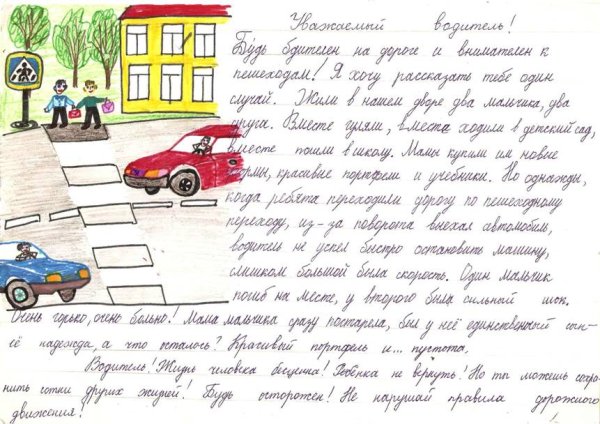 Уважаемый водитель!
Будь бдителен на дороге и внимателен к
пешеходам! Я хочу рассказать тебе один
случай. Жили в нашем дворе два мальчика, два
друга. Вместе гуляли, вместе ходили в детский сад,
вместе пошли в школу. Мамы купили им новые
формы, красивые портфели и учебники. Но однажды,
когда ребята переходили дорогу по пешеходному
переходу, из-за поворота выехал автомобиль,
водитель не успел быстро остановить машину,
слишком большой была скорость. Один мальчик
погиб на месте, у второго была сильный шок.
Очень горько, очено больно! Мама мальчика сразу постарела, был у неё единственный сын-
её надежда, а что осталось? Красивый портфель и... пустота.
Водитель! Жизнь человека бесценна! Ребёнка не вернуть! Но ты можешь сохра-
нить сотни других жизней! Будь осторожен! Не нарушай правила дорожного
движения!